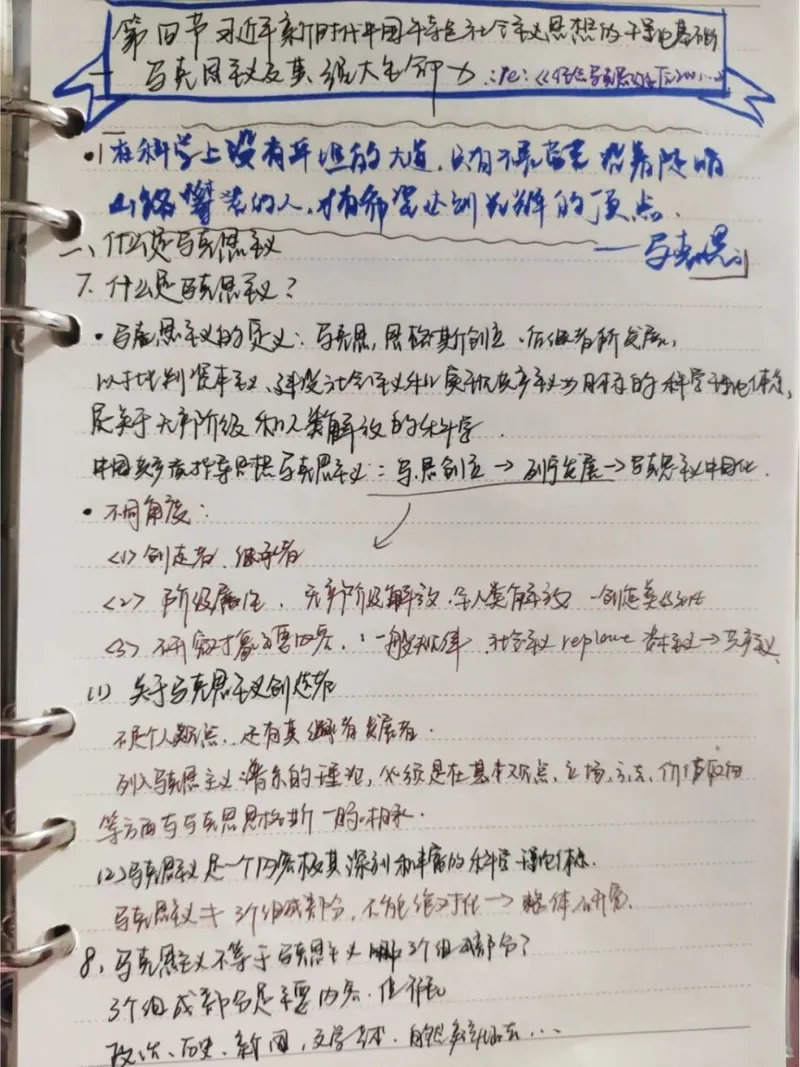 第四节 习近平新时代中国特色社会主义思想的理论基础
一 马克思主义及其强大生命力
• 在科学上没有平坦的大道，只有不畏劳苦沿着陡峭
山路攀登的人，才有希望达到光辉的顶点．
——马克思
一、什么是马克思主义
7. 什么是马克思主义？
• 马克思主义的定义：马克思，恩格斯创立，后继者所发展，
以批判资本主义、建设社会主义和实现共产主义为目标的科学理论体系，
是关于无产阶级和人类解放的科学．
中国共产党指导思想马克思主义：马恩创立→列宁发展→马克思主义中国化．
• 不同角度：
<1> 创造者、继承者
<2> 阶级属性，无产阶级解放、全人类解放
<3> 研究对象主要内容，：一般规律 社会主义 replace 资本主义→共产主义
(1) 关于马克思主义创造者
不是个人观点，还有其继承者发展者．
列入马克思主义谱系的理论，必须是在基本观点、立场、方法、价值取向
等方面与马克思恩格斯一脉相承．
(2) 马克思主义是一个内容极其深刻和丰富的科学理论体系．
马克思主义 3个组成部分，不能绝对化→整体研究．
8、马克思主义不等于马克思主义 3个组成部分？
3个组成部分是主要内容，
政治、历史、新闻，文学艺术．自然